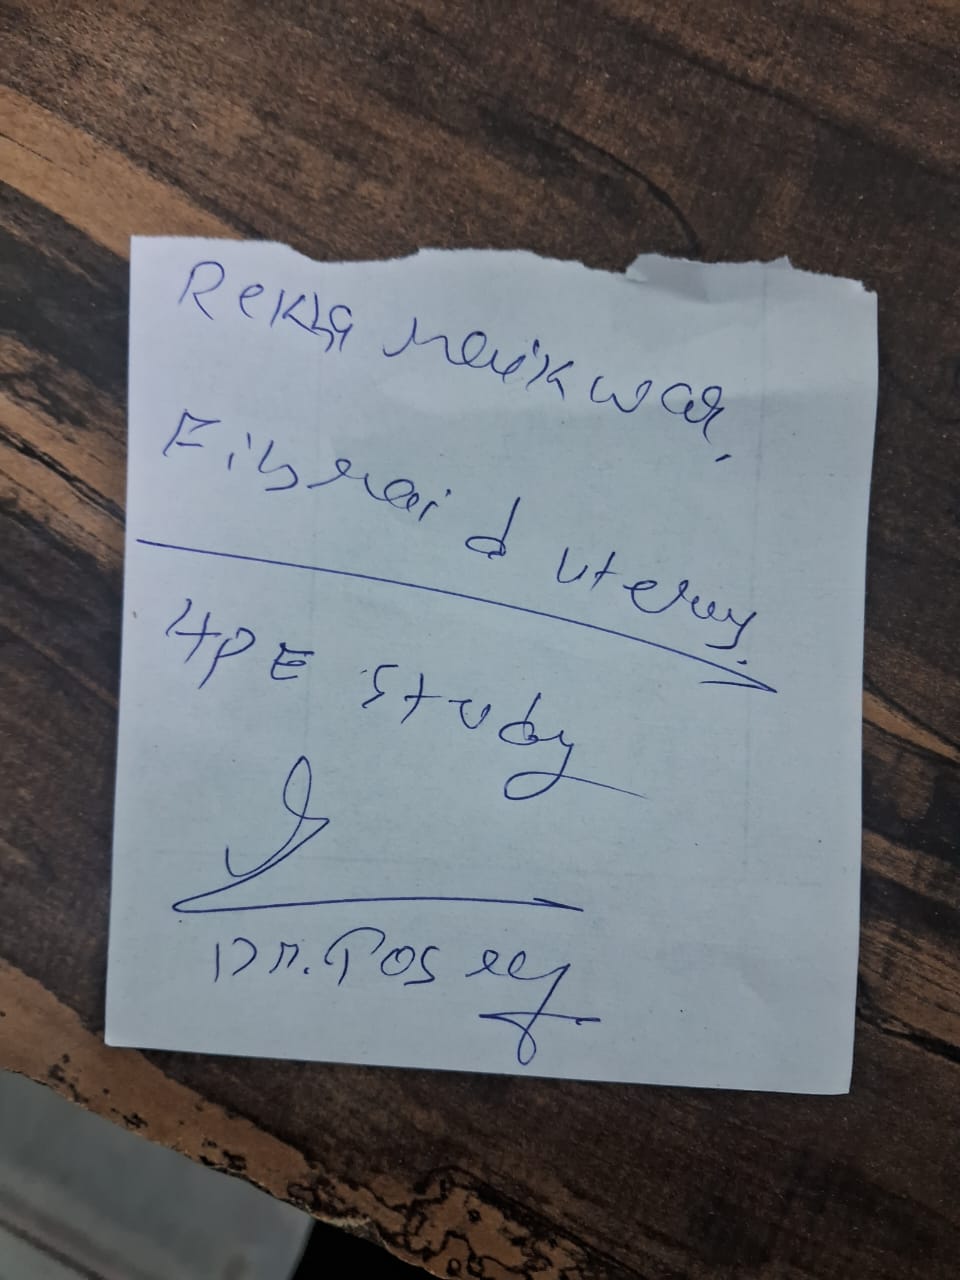 Rekha naikwar,
Fibroid uterus.
HPE study
Dr.